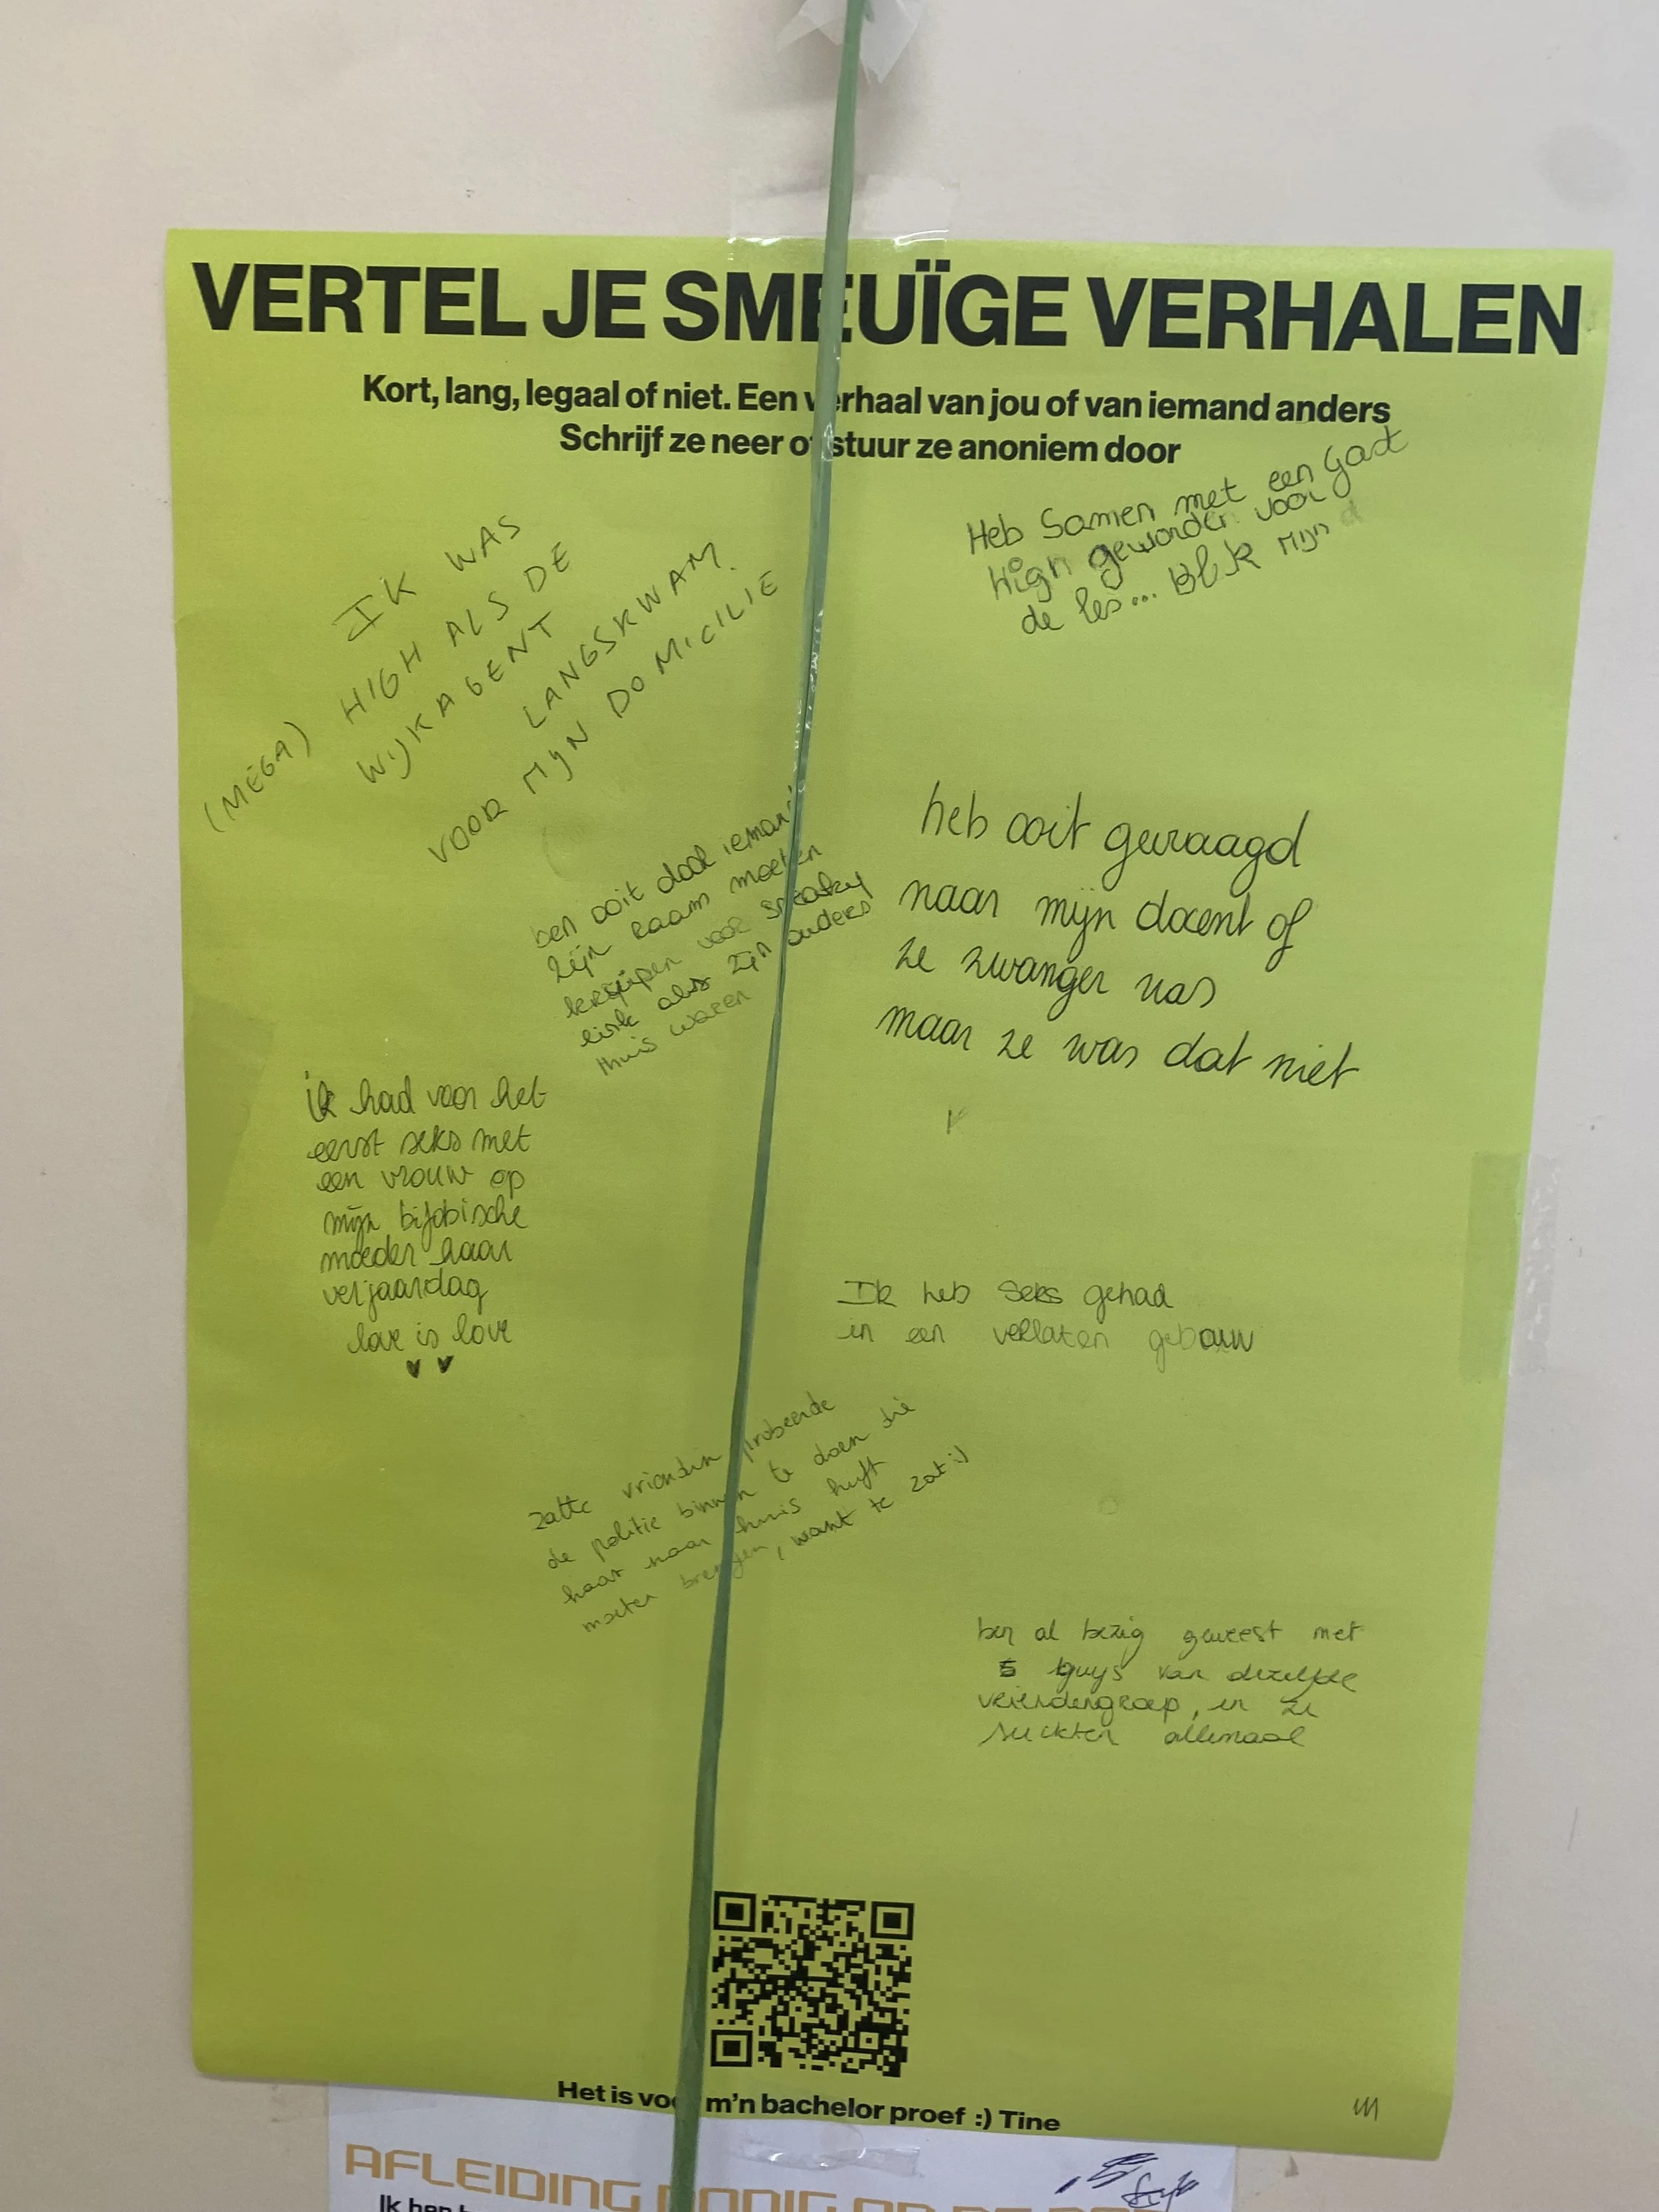 VERTEL JE SMEUÏGE VERHALEN
Kort, lang, legaal of niet. Een verhaal van jou of van iemand anders
Schrijf ze neer of stuur ze anoniem door
Heb Samen met een Gast
High geworden voor
de les... Blik mijn
IK WAS
(MEGA) HIGH ALS DE
WIJKAGENT
LANGSKWAM
VOOR MIJN DOMICILIE
heb ooit gevraagd
naar mijn docent of
ze zwanger was
maar ze was dat niet
ben ooit door iemand
zijn raam moeten
kruipen voor sneaky
link als zijn ouders
thuis waren
ik had voor het
eerst seks met
een vrouw op
mijn
moeder haar
verjaardag
love is love
Ik heb seks gehad
in een verlaten gebouw
zatte vriendin probeerde
de politie binnen te doen die
haar naar huis heeft
moeten brengen, want te zat :)
ben al bezig geweest met
5 guys van dezelfde
vriendengroep, en ze
suckten allemaal
Het is voor m'n bachelor proef :) Tine
AFLEIDING NODIG OP DE
Ik ben